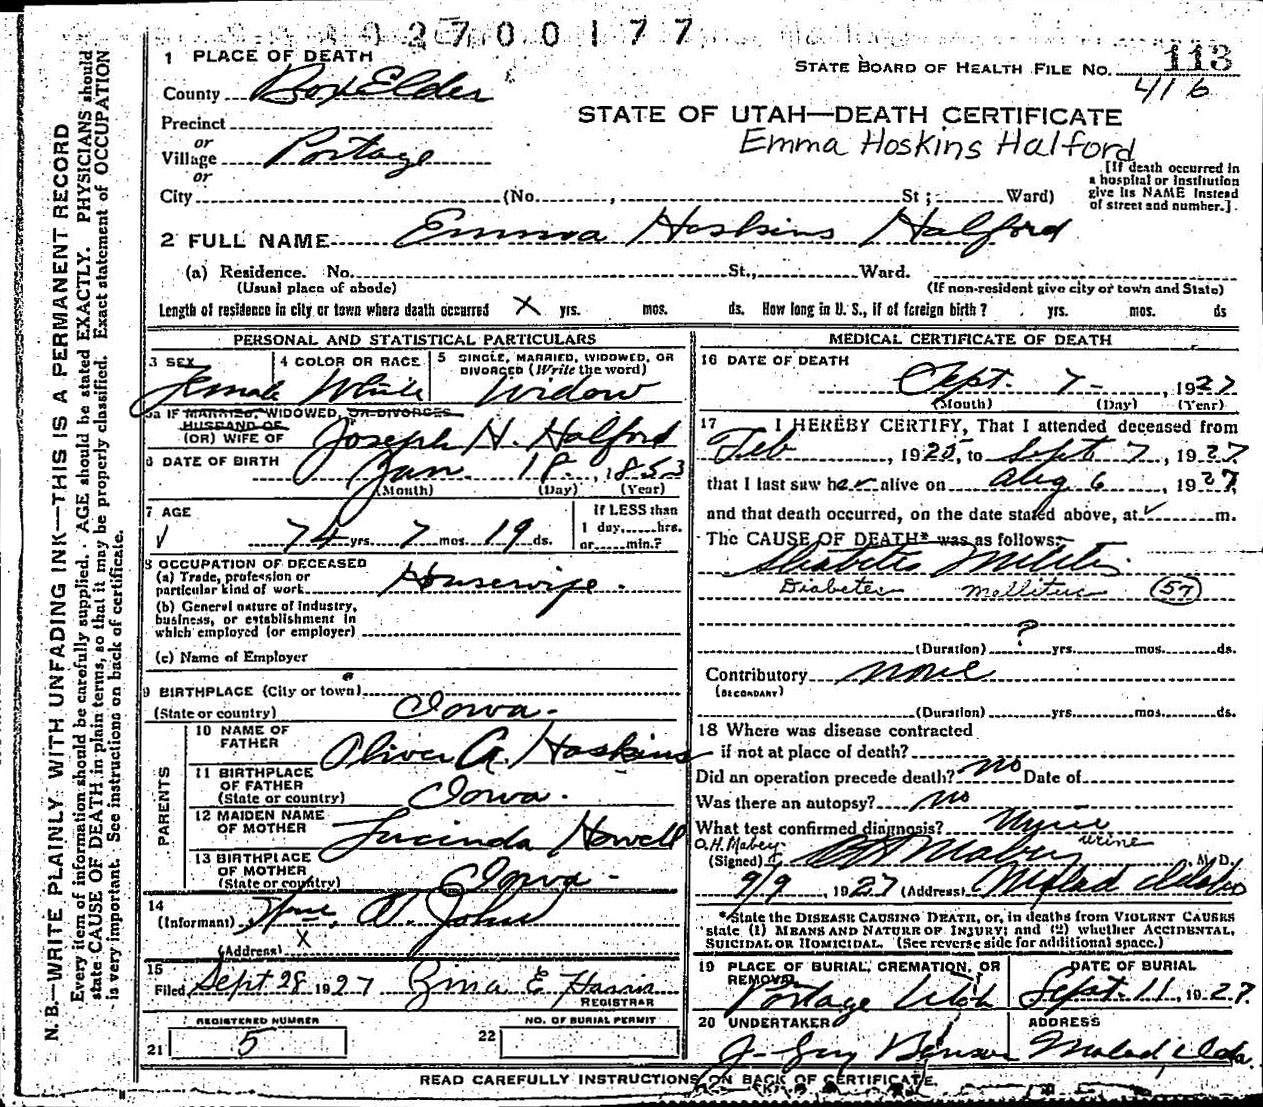 02700177
1 PLACE OF DEATH
STATE BOARD OF HEALTH FILE NO. 113
416
County Box Elder
STATE OF UTAH—DEATH CERTIFICATE
Precinct
Emma Hoskins Halford
or
Village Portage
or
[If death occurred in
a hospital or institution
give its NAME instead
of street and number.]
City (No. , St ; Ward)
2 FULL NAME Emma Hoskins Halford
(a) Residence. No. St., Ward.
(Usual place of abode) (If non-resident give city or town and State)
Length of residence in city or town where death occurred X yrs. mos. ds. How long in U. S., if of foreign birth? yrs. mos. ds
PERSONAL AND STATISTICAL PARTICULARS
3 SEX 4 COLOR OR RACE 5 SINGLE, MARRIED, WIDOWED, OR
DIVORCED (Write the word)
Female White Widow
5a IF MARRIED, WIDOWED, OR DIVORCED
HUSBAND OF
(OR) WIFE OF Joseph H. Halford
6 DATE OF BIRTH Jan. 18, 1853
(Month) (Day) (Year)
7 AGE If LESS than
1 day, hrs.
74 yrs. 7 mos. 19 ds. or min.?
8 OCCUPATION OF DECEASED
(a) Trade, profession or
particular kind of work Housewife.
(b) General nature of Industry,
business, or establishment in
which employed (or employer)
(c) Name of Employer
9 BIRTHPLACE (City or town)
(State or country) Iowa.
PARENTS
10 NAME OF
FATHER Oliver A. Hoskins
11 BIRTHPLACE
OF FATHER
(State or country) Iowa.
12 MAIDEN NAME
OF MOTHER Lucinda Howell
13 BIRTHPLACE
OF MOTHER
(State or country) Iowa.
14
(Informant) John
(Address) X
15
Filed Sept 28 1927 Zma E Harris
REGISTRAR
REGISTERED NUMBER NO. OF BURIAL PERMIT
21 5 22
MEDICAL CERTIFICATE OF DEATH
16 DATE OF DEATH
Sept. 7 - , 1927
(Month) (Day) (Year)
17 I HEREBY CERTIFY, That I attended deceased from
Feb , 1925, to Sept 7, 1927,
that I last saw her alive on Aug 6, 1927,
and that death occurred, on the date stated above, at m.
The CAUSE OF DEATH* was as follows:
Diabetes Mellitus
Diabetes mellitus (57)
?
(Duration) yrs. mos. ds.
Contributory none
(SECONDARY)
(Duration) yrs. mos. ds.
18 Where was disease contracted
if not at place of death?
Did an operation precede death? no Date of
Was there an autopsy? no
What test confirmed diagnosis? Urine
urine
O.H. Mabey
(Signed) O H Mabey M. D.
9/9 , 1927 (Address) Malad Idaho
*State the DISEASE CAUSING DEATH, or, in deaths from VIOLENT CAUSES
state (1) MEANS AND NATURE OF INJURY; and (2) whether ACCIDENTAL,
SUICIDAL OR HOMICIDAL. (See reverse side for additional space.)
19 PLACE OF BURIAL, CREMATION, OR DATE OF BURIAL
REMOVAL
Portage Utah Sept. 11, 1927.
20 UNDERTAKER ADDRESS
J. Guy Benson Malad, Ida.
READ CAREFULLY INSTRUCTIONS ON BACK OF CERTIFICATE.
N. B.—WRITE PLAINLY WITH UNFADING INK—THIS IS A PERMANENT RECORD
Every item of information should be carefully supplied. AGE should be stated EXACTLY. PHYSICIANS should
state CAUSE OF DEATH in plain terms, so that it may be properly classified. Exact statement of OCCUPATION
is very important. See instructions on back of certificate.